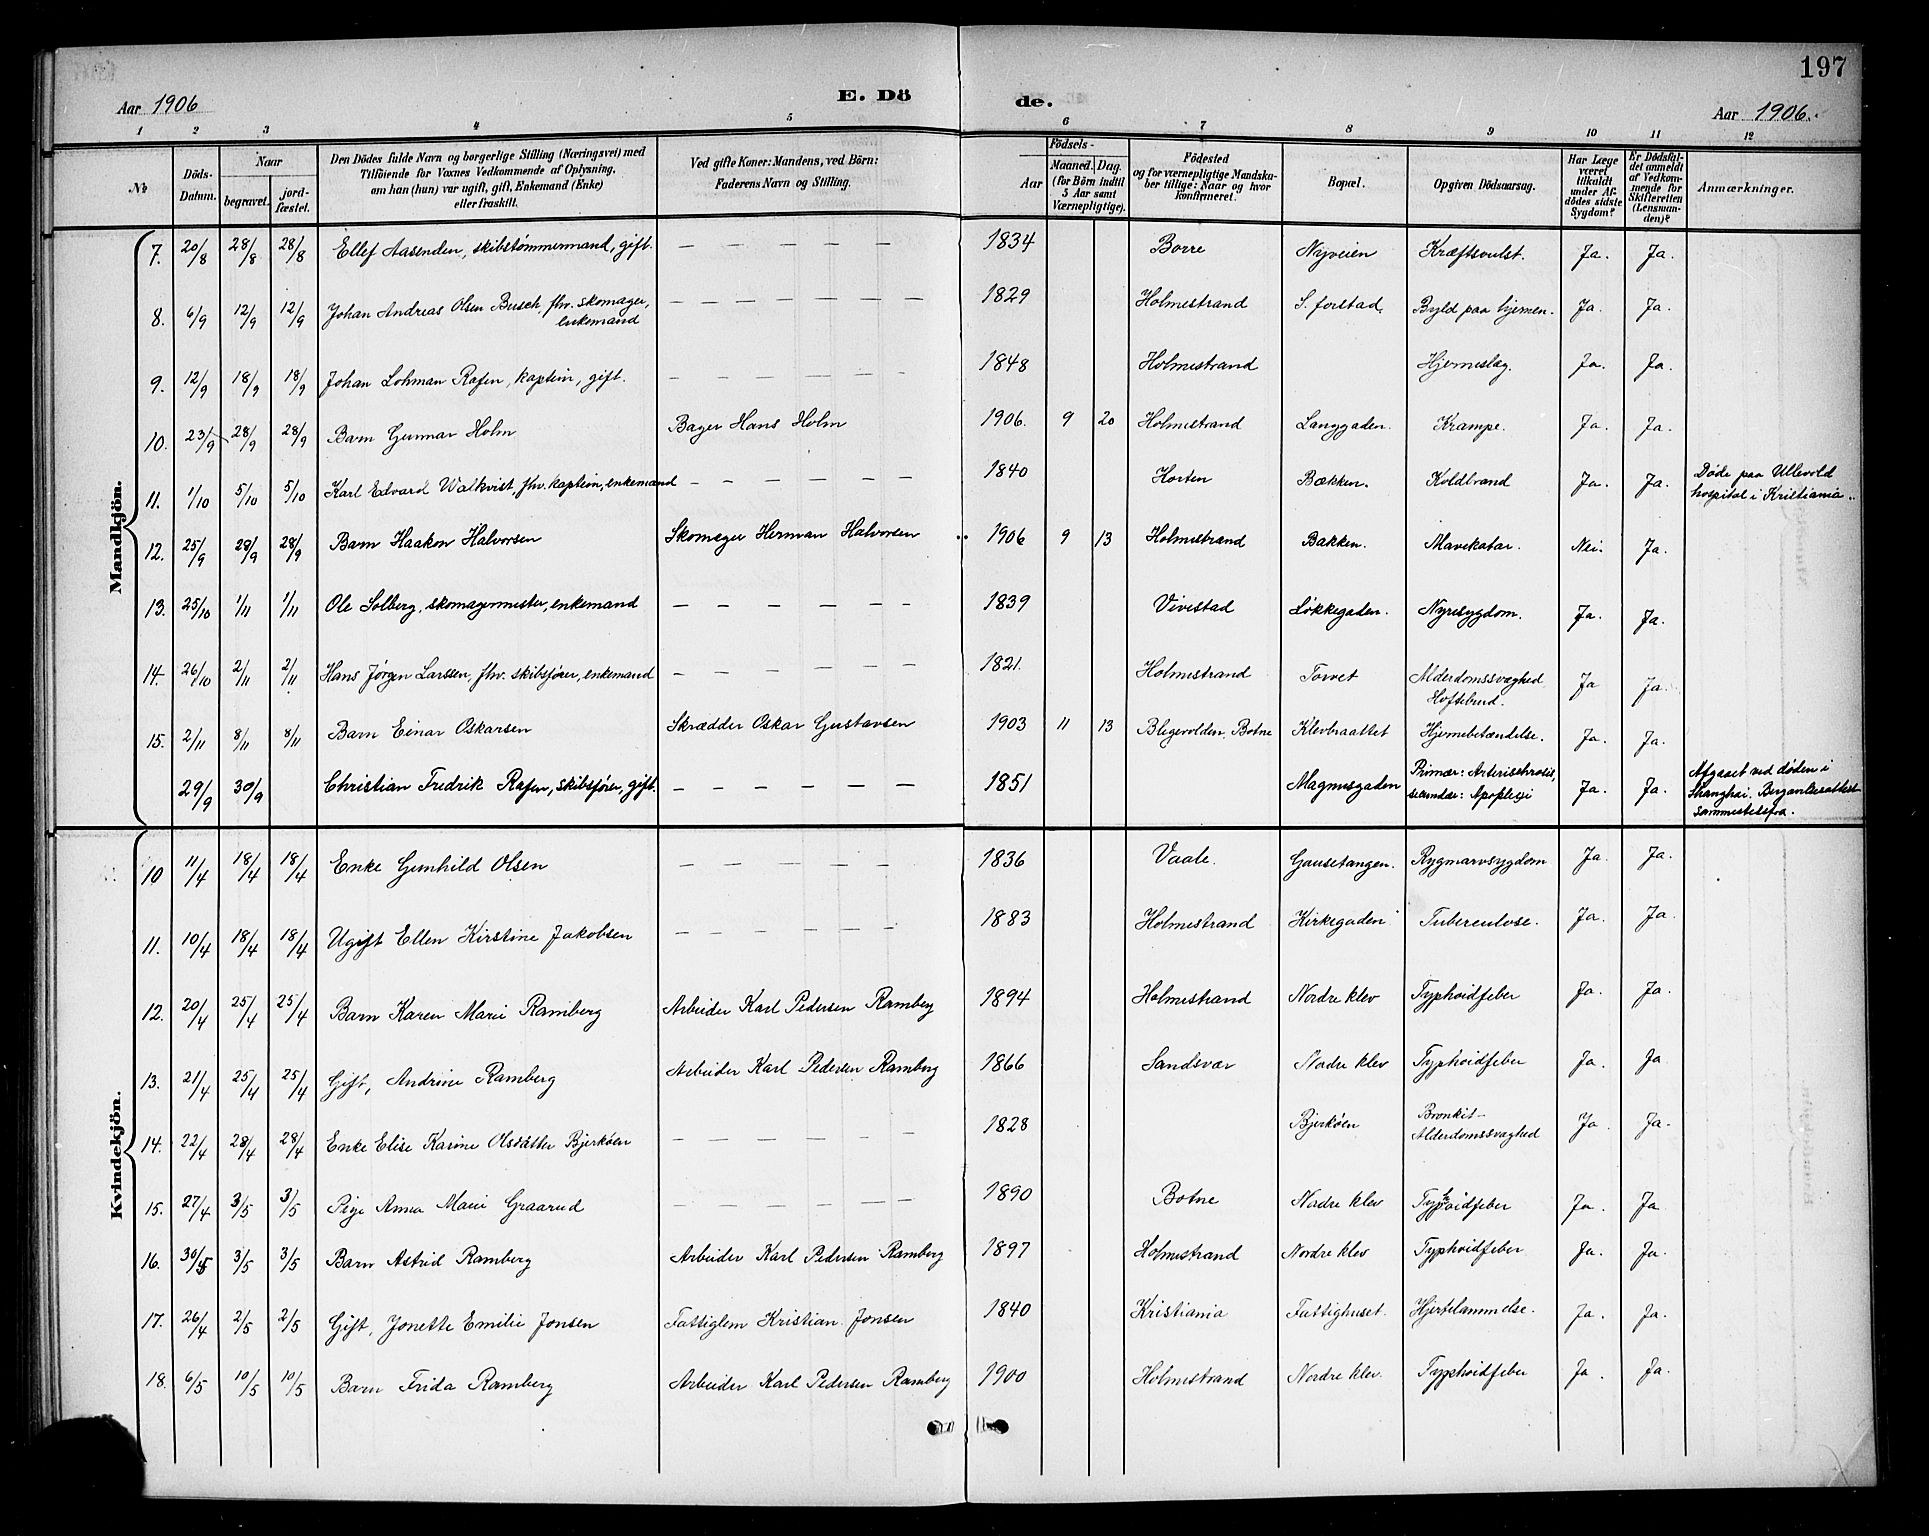 197
Aar 1906
E. Dö
de.
Aar 1906.
1 2 3 4 5 6 7 8 9 10 11 12
No
Döds-Datum.
Naar
begravet.
jord-fæstet.
Den Dödes fulde Navn og borgerlige Stilling (Næringsvei) med
Tilföiende for Voxnes Vedkommende af Oplysning,
om han (hun) var ugift, gift, Enkemand (Enke)
eller fraskilt.
Ved gifte Koner: Mandens, ved Börn:
Faderens Navn og Stilling.
Födsels-
Aar
Maaned. Dag.
(for Börn indtil
5 Aar samt
Værnepligtige).
Födested
og for værnepligtige Mandska-
ber tillige: Naar og hvor
konfirmeret.
Bopæl.
Opgiven Dödsaarsag.
Har Læge
været
tilkaldt
under Af-
dödes sidste
Sygdom?
Er Dödsfal-
det anmeldt
af Vedkom-
mende for
Skifteretten
(Lensman-
den)?
Anmærkninger.
Mandkjön.
7. 20/8 28/8 28/8 Ellef Aasenden, skibstømmermand, gift. — — — — — 1834 Borre Nyveien Kræftsvulst. Ja. Ja.
8. 6/9 12/9 12/9 Johan Andreas Olsen Busch, fhv. skomager, — — — — — — 1829 Holmestrand S. forstad. Byld paa hjernen. Ja. Ja.
enkemand
9. 12/9 18/9 18/9 Johan Lohman Rafen, kaptein, gift. — — — — — — 1848 Holmestrand Hjerneslag. Ja. Ja.
10. 23/9 28/9 28/9 Barn Gunnar Holm Bager Hans Holm 1906. 9 20 Holmestrand Langgaden. Krampe. Ja. Ja.
11. 1/10 5/10 5/10 Karl Edvard Walkvist, fhv. kaptein, enkemand — — — — — 1840 Horten Bækken. Koldbrand Ja. Ja. Døde paa Ullevold
hospital i Kristiania.
12. 25/9 28/9 28/9 Barn Haakon Halvorsen Skomager Herman Halvorsen 1906 9 13 Holmestrand Bakken. Mavekatar. Nei. Ja.
13. 25/10 1/11 1/11 Ole Solberg, skomagermester, enkemand — — — — — 1839 Vivestad Løkkegaden. Nyresygdom. Ja. Ja.
14. 26/10 2/11 2/11 Hans Jørgen Larssen, fhv. skibsfører, enkemand — — — — — — 1821. Holmestrand Torvet Alderdomssvaghed Ja Ja.
Hoftebrud.
15. 2/11 8/11 8/11 Barn Einar Oskarsen Skrædder Oskar Gustavsen 1903 11 13 Blegevolden, Botne Klevbraattet Hjernebetændelse. Ja. Ja.
29/9 30/9 Christian Fredrik Rafen, skibsfører, gift. — — — — — 1851 Magnusgaden Primær: Arterischrosis, Ja. Ja. Afgaaet ved døden i
secundær: Apoplexi Shanghai.
Kvindekjön.
10 11/4 18/4 18/4 Enke Gunhild Olsen — — — — — 1836 Vaale. Gausetangen. Rygmarvsygdom Ja. Ja.
11. 10/4 18/4 18/4 Ugift Ellen Kirstine Jakobsen — — — — — — 1883 Holmestrand Kirkegaden Tuberculose. Ja. Ja.
12. 20/4 25/4 25/4 Barn Karen Marie Ramberg Arbeider Karl Pedersen Ramberg 1894 Holmestrand Nordre klev Typhoidfeber Ja. Ja.
13. 21/4 25/4 25/4 Gift, Andrine Ramberg Arbeider Karl Pedersen Ramberg 1866 Sandsvær Nordre klev Typhoidfeber Ja. Ja
14. 22/4 28/4 28/4 Enke Elise Karine Olsdatter Bjerkøen — — — — — — 1828 Bjerkøen Bronkit- Ja Ja.
Alderdomssvaghed
15. 27/4 3/5 3/5 Pige Anna Marie Graarud — — — — — — 1890 Botne Nordre klev Typhoidfeber Ja. Ja
16. 30/4 3/5 3/5 Barn Astrid Ramberg Arbeider Karl Pedersen Ramberg 1897 Holmestrand Nordre klev Typhoidfeber Ja. Ja.
17. 26/4 2/5 2/5 Gift, Jonette Emilie Jonsen Fattiglem Kristian Jonsen 1840 Kristiania Fattighuset. Hjertelammelse. Ja. Ja.
18. 6/5 10/5 10/5 Barn Frida Ramberg Arbeider Karl Pedersen Ramberg 1900 Holmestrand Nordre klev. Typhoidfeber Ja. Ja.